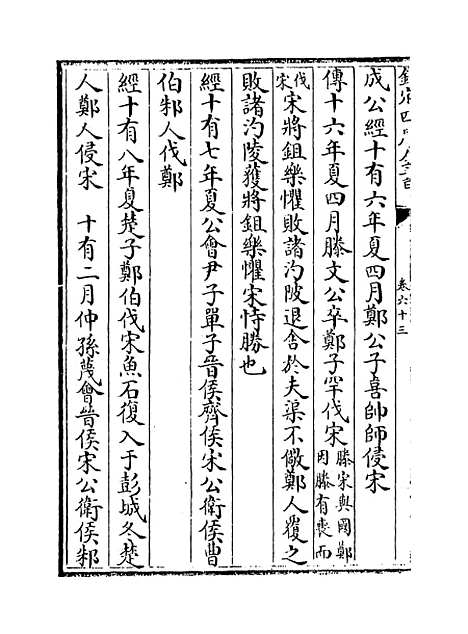 欽定四庫全書
卷六十三
成公經十有六年夏四月鄭公子喜帥師侵宋
傳十六年夏四月滕文公卒鄭子罕伐宋滕宋與國鄭因滕有喪而
伐宋宋將鉏樂懼敗諸汋陂退舍於夫渠不儆鄭人覆之
敗諸汋陵獲將鉏樂懼宋恃勝也
經十有七年夏公會尹子單子晉侯齊侯宋公衛侯曹
伯邾人伐鄭
經十有八年夏楚子鄭伯伐宋魚石復入于彭城冬楚
人鄭人侵宋　十有二月仲孫蔑會晉侯宋公衛侯邾